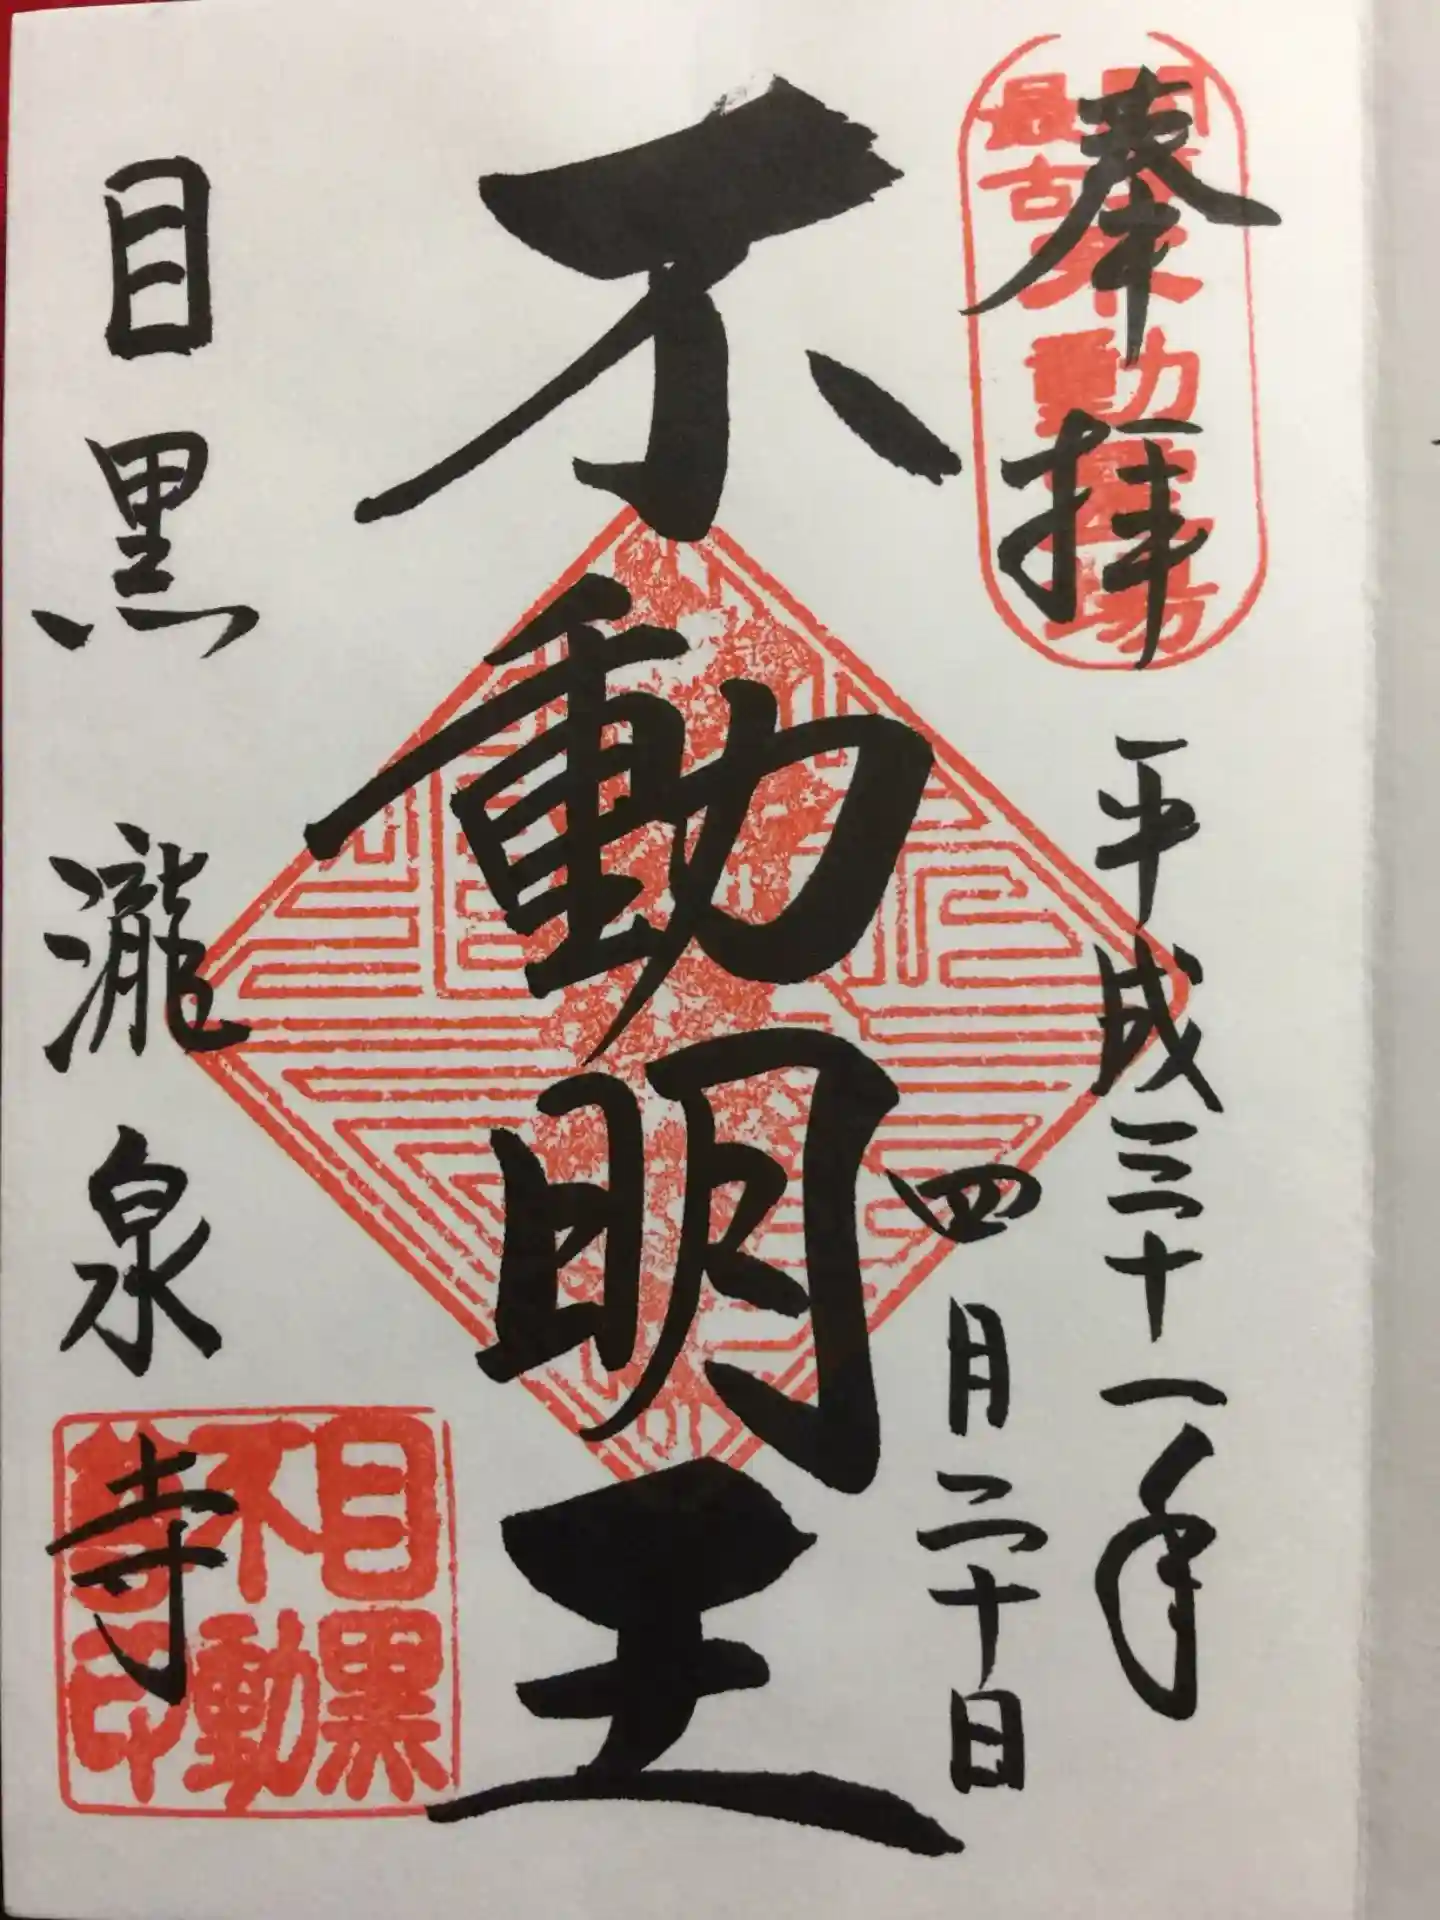 奉拝
平成三十一年
四月二十日
不動明王
目黒瀧泉寺
最古
動
場
目黒
不動
印